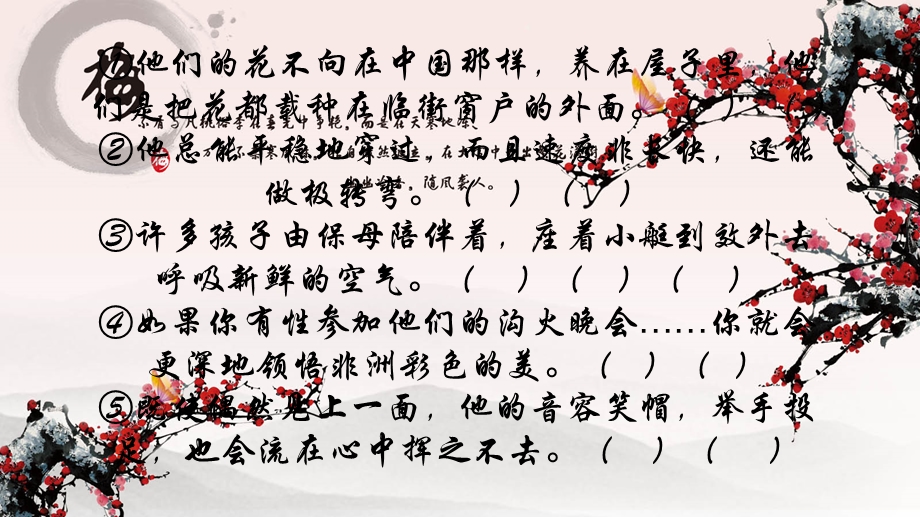 梅
①他们的花不向在中国那样，养在屋子里，他
们是把花都载种在临街窗户的外面。（ ）（ ）
中争艳，而是在天寒地冻
②他总能平稳地穿过，而且速度非长快，还能
做极转弯。（ ）（ ）
随风袭人。
③许多孩子由保母陪伴着，座着小艇到效外去
呼吸新鲜的空气。（ ）（ ）（ ）
④如果你有性参加他们的沟火晚会……你就会
更深地领悟非洲彩色的美。（ ）（ ）
⑤既使偶然见上一面，他的音容笑帽，举手投
足，也会流在心中挥之不去。（ ）（ ）